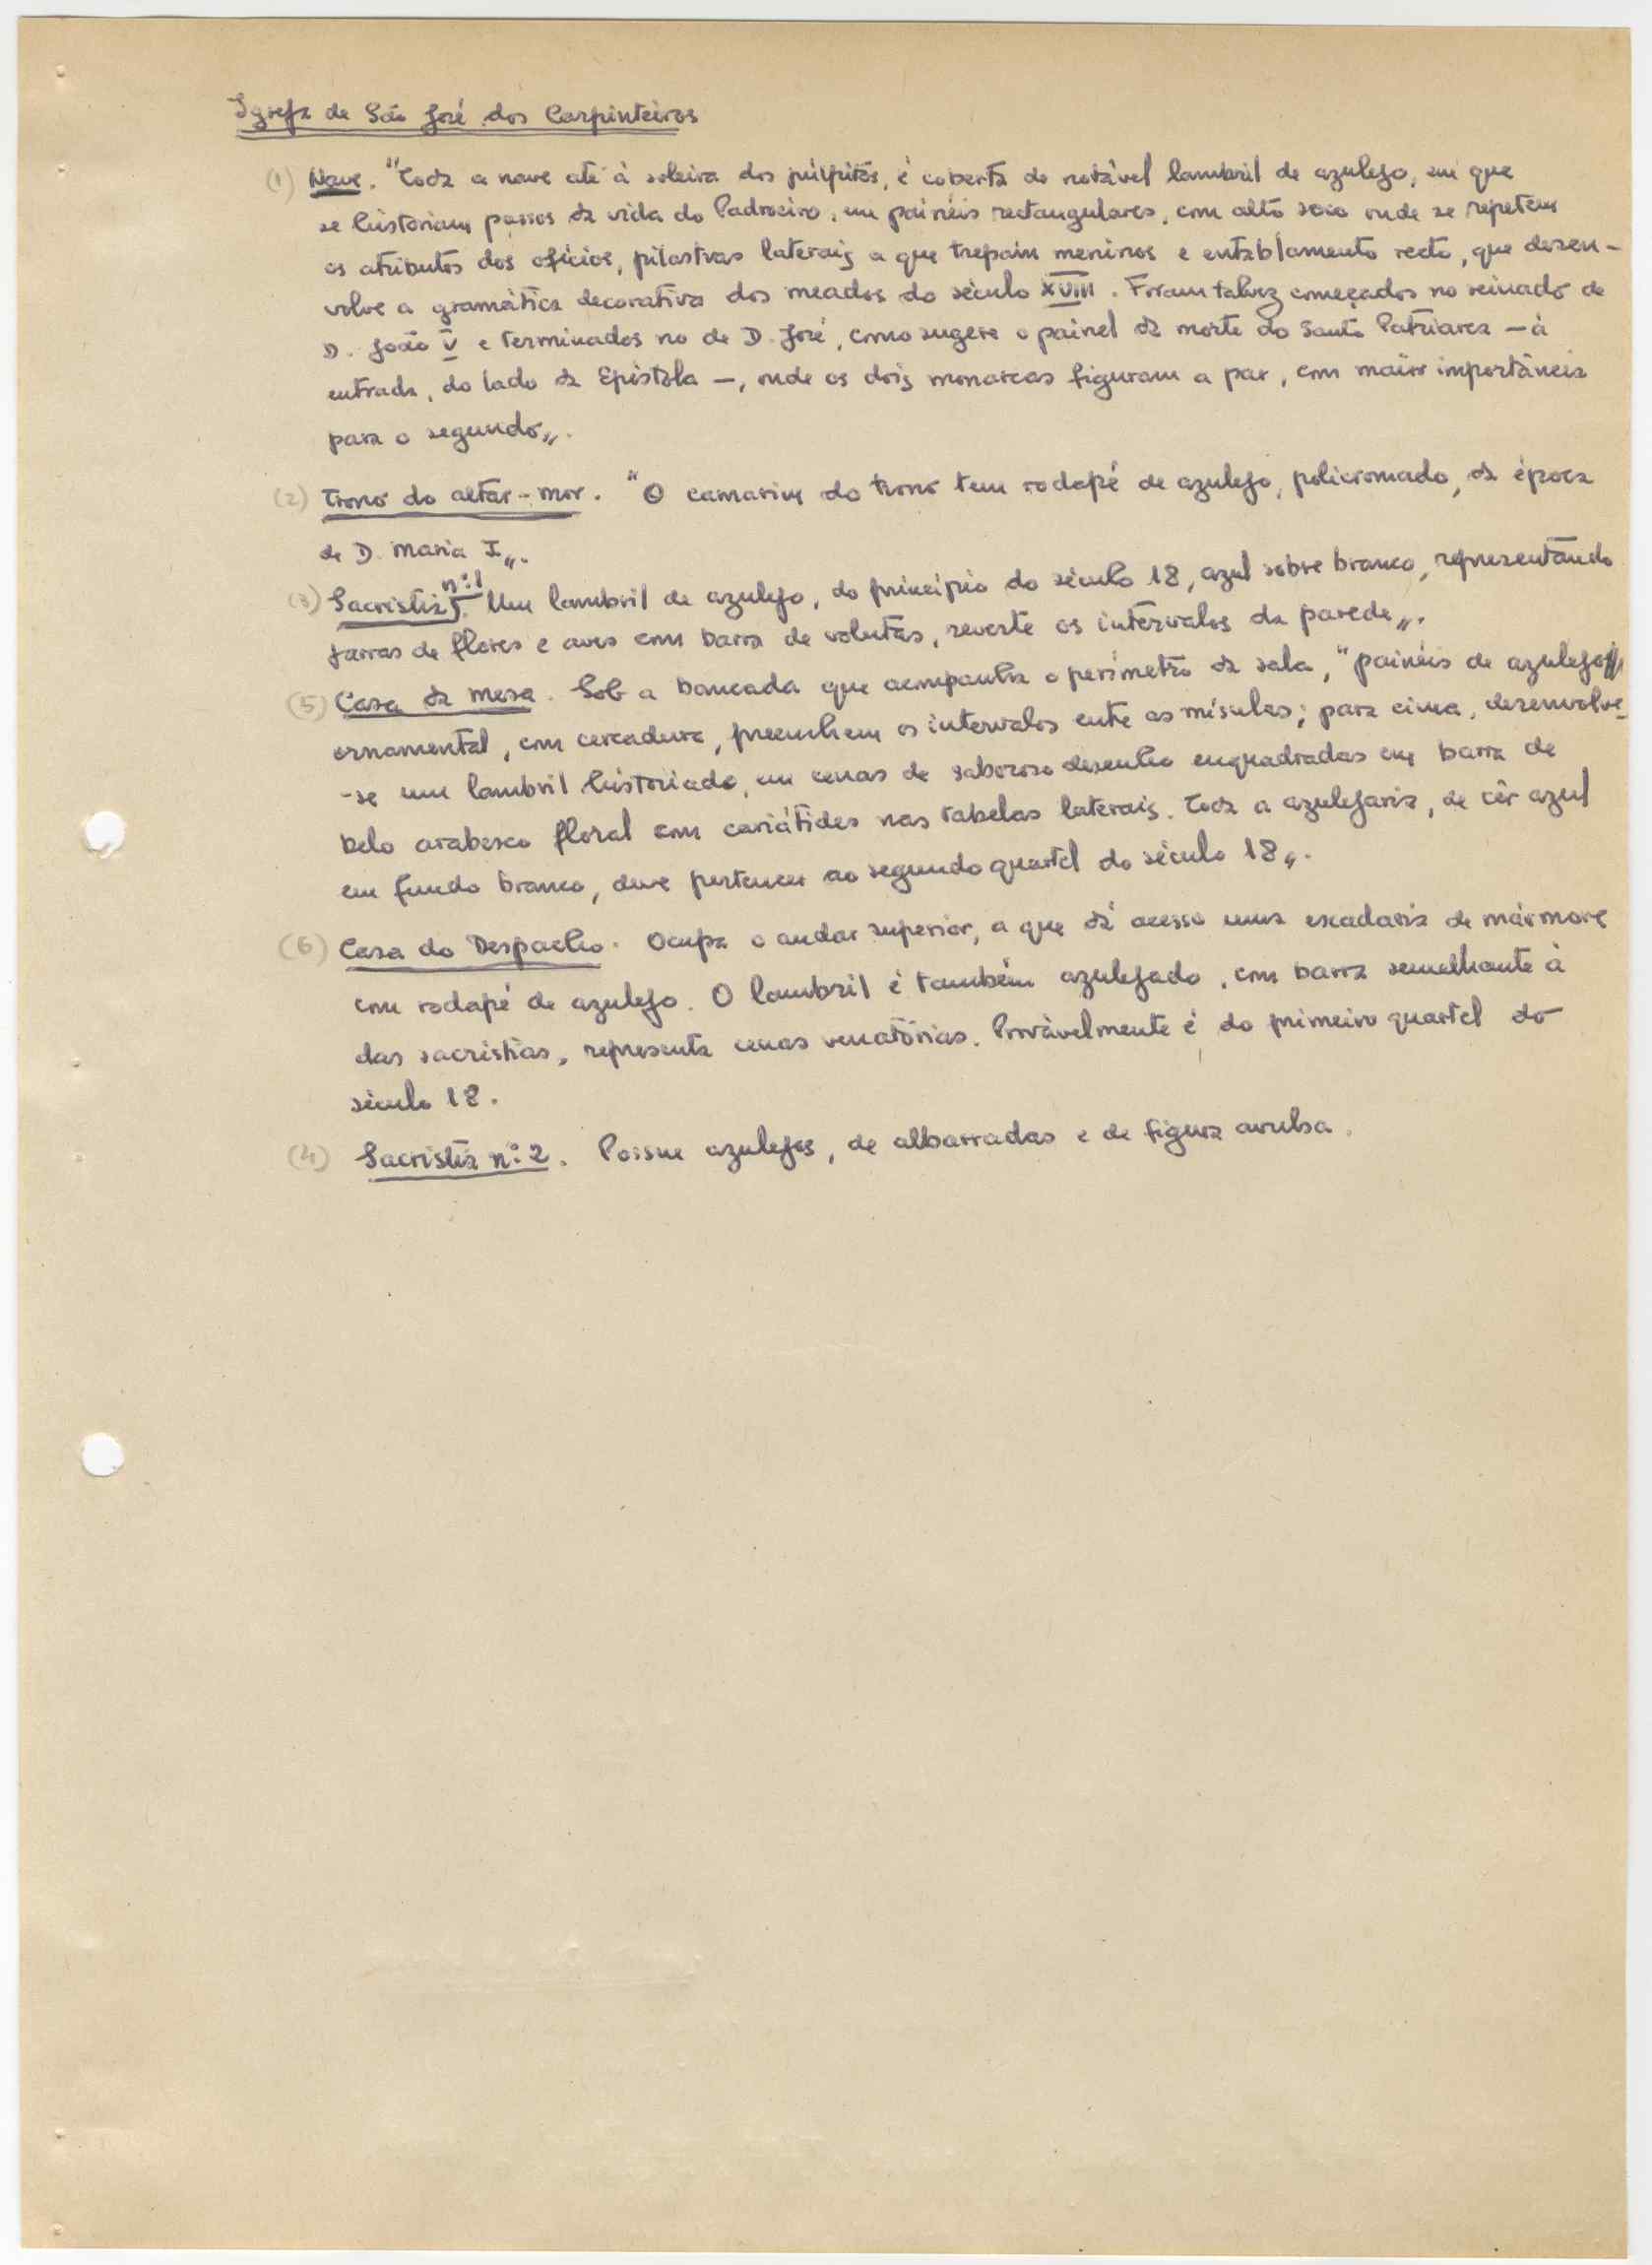 Igreja de São José dos Carpinteiros
(1) Nave. "Toda a nave até à soleira dos púlpitos, é coberta de notável lambril de azulejo, em que
se historiam passos da vida do Padroeiro, em painéis rectangulares, com alto soco onde se repetem
os atributos dos ofícios, pilastras laterais a que trepam meninos e entablamento recto, que desen-
volve a gramática decorativa dos meados do século XVIII. Foram talvez começados no reinado de
D. João V e terminados no de D. José, como sugere o painel da morte do Santo Patriarca — à
entrada, do lado da Epístola —, onde os dois monarcas figuram a par, com maior importância
para o segundo„.
(2) Trono do altar-mor. "O camarim do trono tem rodapé de azulejo, policromado, da época
de D. Maria I„.
(3) Sacristia nº 1. Um lambril de azulejo, do princípio do século 18, azul sobre branco, representando
jarras de flores e aves com barra de volutas, reveste os intervalos da parede„.
(5) Casa da mesa. Sob a bancada que acompanha o perímetro da sala, "painéis de azulejo
ornamental, com cercadura, preenchem os intervalos entre as mísulas; para cima, desenvolve-
-se um lambril historiado, em cenas de saboroso desenho enquadradas em barra de
belo arabesco floral com cariátides nas tabelas laterais. Toda a azulejaria, de côr azul
em fundo branco, deve pertencer ao segundo quartel do século 18„.
(6) Casa do Despacho. Ocupa o andar superior, a que dá acesso uma escadaria de mármore
com rodapé de azulejo. O lambril é também azulejado, com barra semelhante à
das sacristias, representa cenas venatórias. Provàvelmente é do primeiro quartel do
século 18.
(4) Sacristia nº 2. Possue azulejos, de albarradas e de figura avulsa.